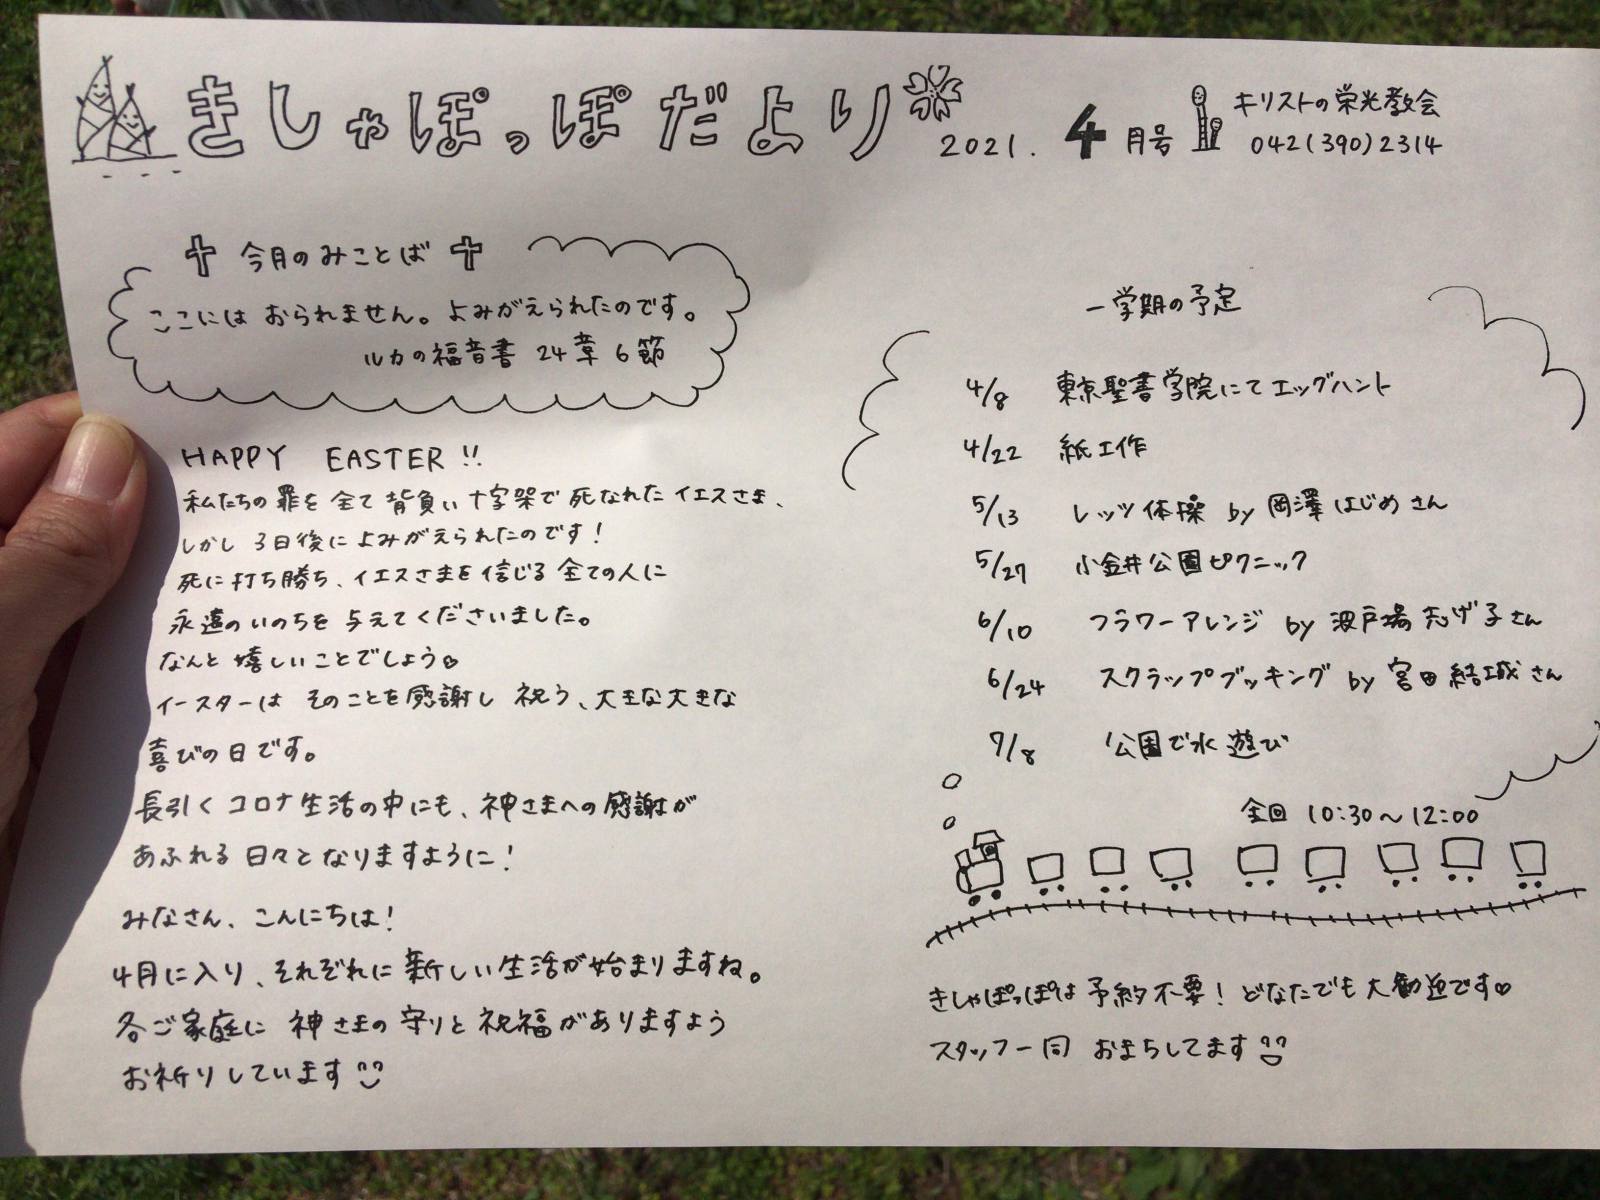 きしゃぽっぽだより
2021. 4月号
キリストの栄光教会
042(390)2314
今月のみことば
ここにはおられません。よみがえられたのです。
ルカの福音書 24章6節
HAPPY EASTER!!
私たちの罪を全て背負い十字架で死なれたイエスさま、
しかし3日後によみがえられたのです!
死に打ち勝ち、イエスさまを信じる全ての人に
永遠のいのちを与えてくださいました。
なんと嬉しいことでしょう♡
イースターはそのことを感謝し祝う、大きな大きな
喜びの日です。
長引くコロナ生活の中にも、神さまへの感謝が
あふれる日々となりますように!
みなさん、こんにちは!
4月に入り、それぞれに新しい生活が始まりますね。
各ご家庭に神さまの守りと祝福がありますよう
お祈りしています
一学期の予定
4/8 東京聖書学院にてエッグハント
4/22 紙工作
5/13 レッツ体操 by 岡澤はじめさん
5/27 小金井公園ピクニック
6/10 フラワーアレンジ by 波戸場志げ子さん
6/24 スクラップブッキング by 宮田結城さん
7/8 公園で水遊び
全回 10:30〜12:00
きしゃぽっぽは予約不要!どなたでも大歓迎です♡
スタッフ一同 おまちしてます